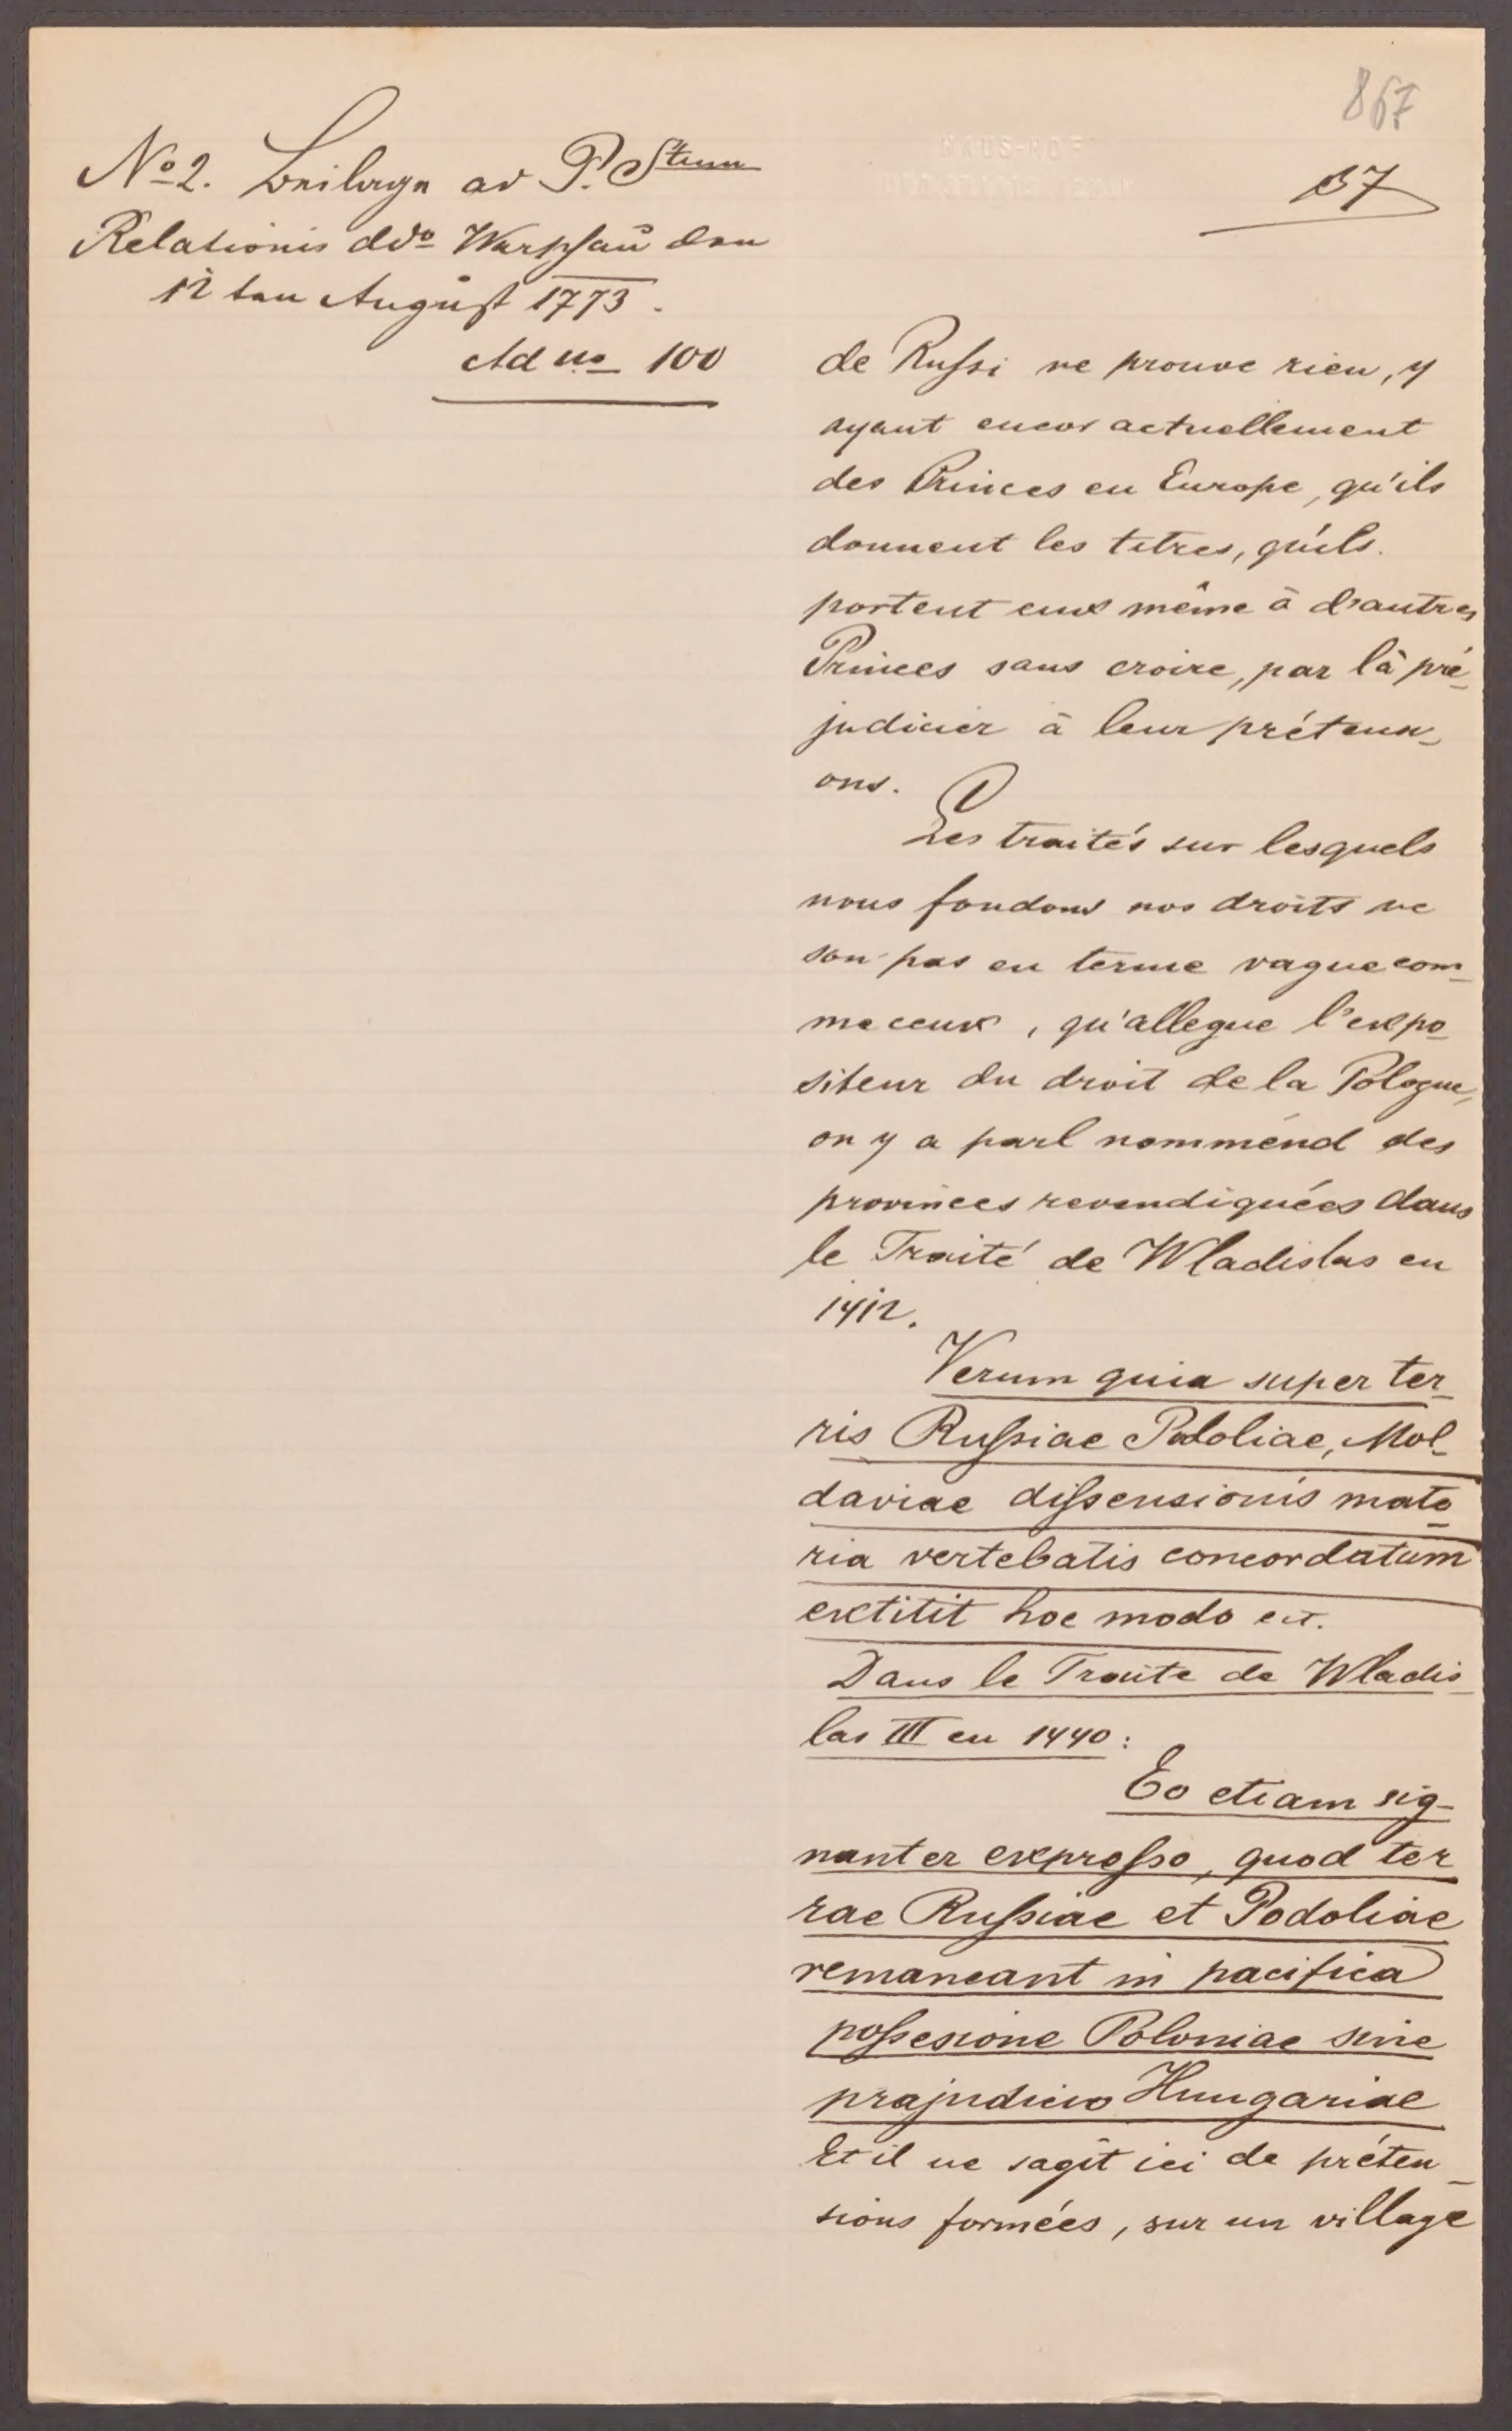 867
37
No 2. Beilage ad P. Stum
Relationis ddo Warschau den
12ten August 1773.
Ad no 100
de Russi ne prouve rien, y
ayant encor actuellement
des Princes en Europe, qu'ils
donnent les titres, qu'ils
portent eux même à d'autres
Princes sans croire, par là pré-
judicier à leur prétensi-
ons.
Les traités sur lesquels
nous fondons nos droits ne
son pas en terme vague com-
me ceux, qu'allegue l'expo-
siteur du droit de la Pologne,
on y a parl nomménd des
provinces revendiquées dans
le Traité de Wladislas en
1412.
Verum quia super ter-
ris Russiae Podoliae, Mol-
daviae dissensionis mate-
ria vertebatis concordatum
extitit hoc modo ect.
Dans le Traite de Wladis-
las III en 1440:
Eo etiam sig-
nanter expresso, quod ter-
rae Russiae et Podoliae
remaneant in pacifica
possesione Poloniae sine
prajudicio Hungariae
Et il ne sagit ici de préten-
sions formées, sur un village